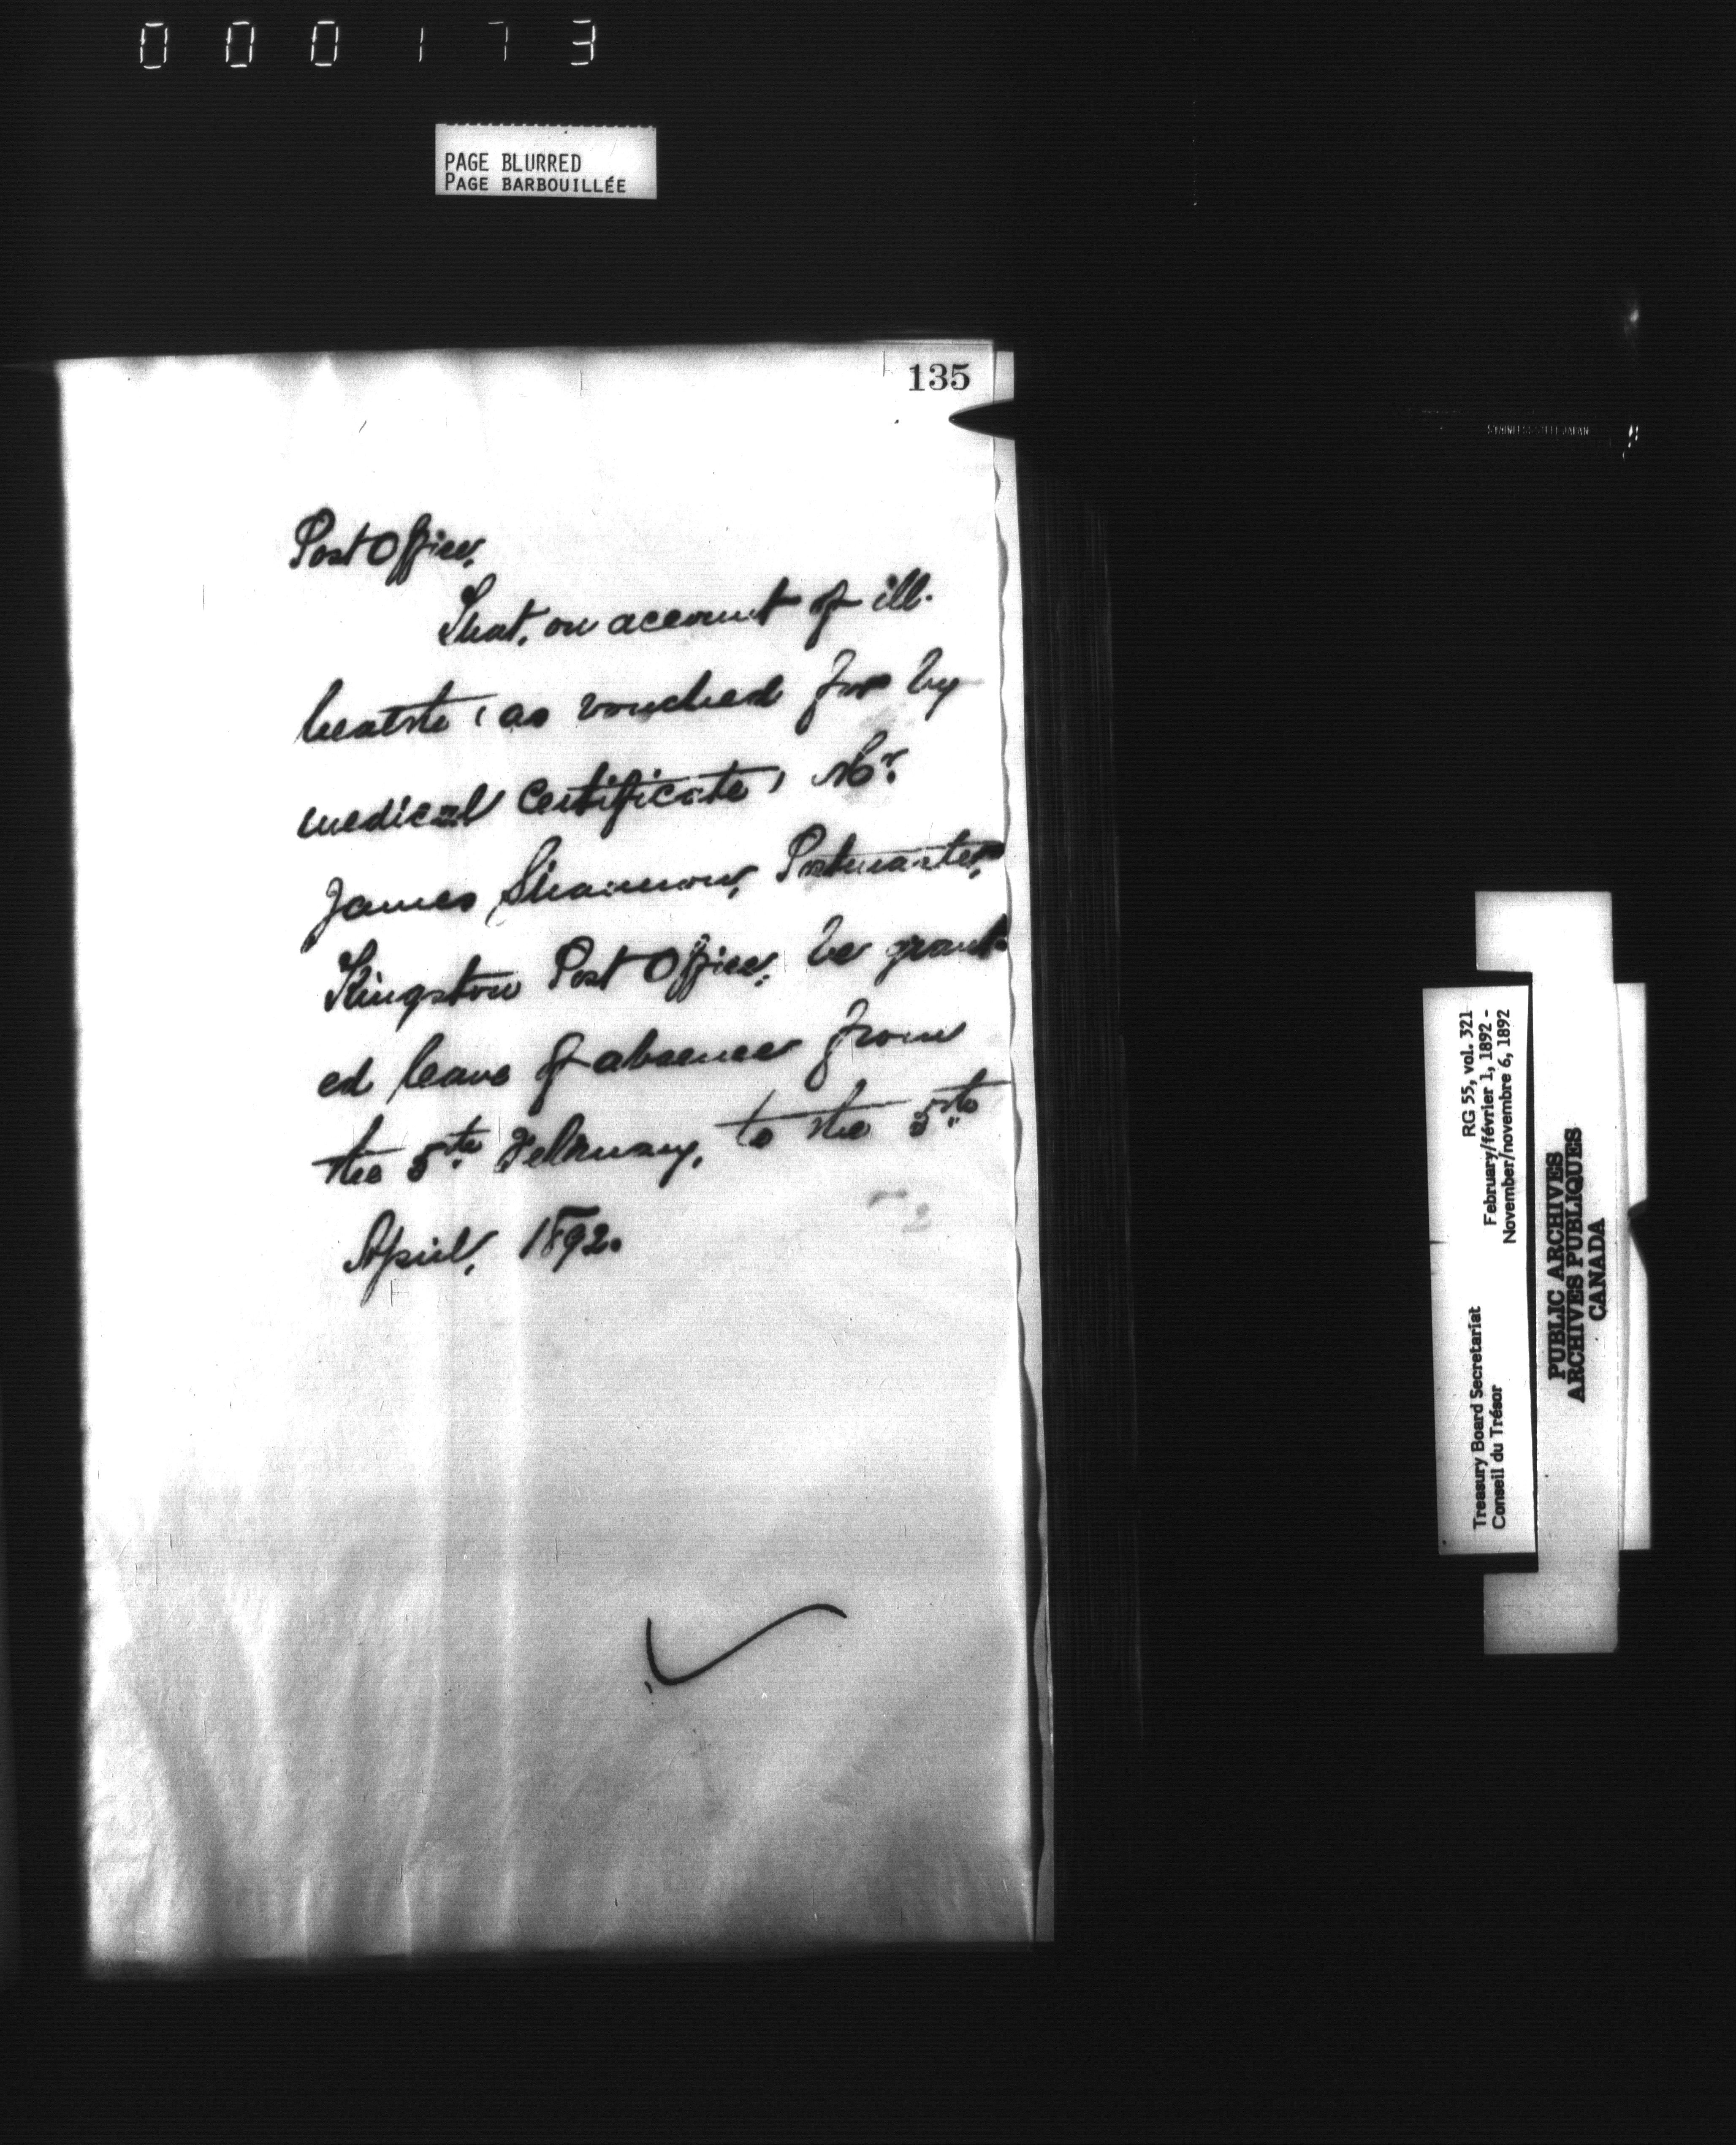 000173
PAGE BLURRED
PAGE BARBOUILLÉE
135
Post Office,
That, on account of ill-
health (as vouched for by
medical certificate) Mr.
James Shannon, Postmaster,
Kingston Post Office, be grant-
ed leave of absence from
the 5th February, to the 5th
April, 1892.
STAINLESS STEEL JAPAN
RG 55, vol. 321
February/février 1, 1892 -
November/novembre 6, 1892
Treasury Board Secretariat
Conseil du Trésor
PUBLIC ARCHIVES
ARCHIVES PUBLIQUES
CANADA